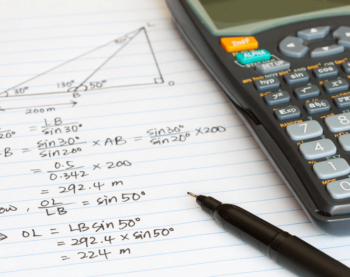 L
30° 130° 50°
B O
200m
20° = LB / sin 30°
B = sin 30° / sin 20° × AB = sin 30° / sin 20° × 200
= 0.5 / 0.342 × 200
= 292.4 m
ow, OL / LB = sin 50°
OL = LB sin 50°
= 292.4 × sin 50°
= 224 m
ALPHA
hyp sin cos
Exp abc
7
4
1
0